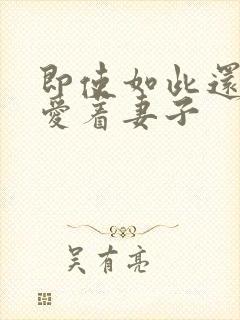 即使如此還
愛着妻子
吴有亮